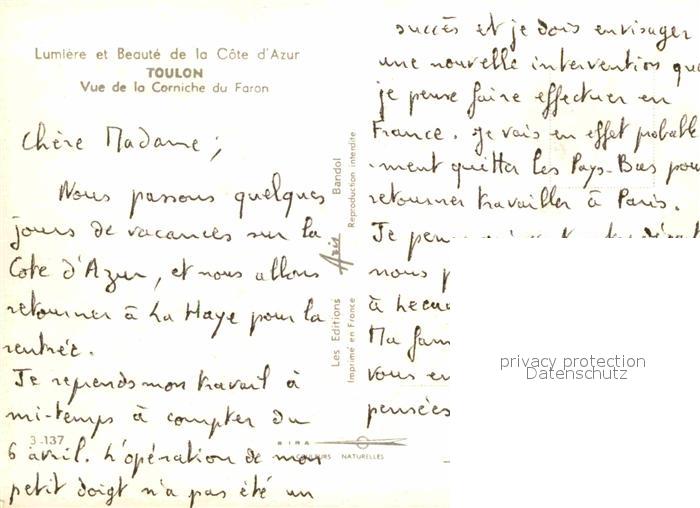 Lumière et Beauté de la Côte d'Azur
TOULON
Vue de la Corniche du Faron
Chère Madame,
Nous passons quelques
jours de vacances sur la
Côte d'Azur, et nous allons
retourner à La Haye pour la
rentrée.
Je reprends mon travail à
mi-temps à compter du
6 avril. L'opération de mon
petit doigt n'a pas été un
3-137
COULEURS NATURELLES
Les Editions Aris Bandol
Imprimé en France Reproduction interdite
succès et je dois envisager
une nouvelle intervention que
je pense faire effectuer en
France. Je vais en effet probable
-ment quitter les Pays-Bas pour
retourner travailler à Paris.
Je
nous
à
Ma
vous en
pensées
privacy protection
Datenschutz